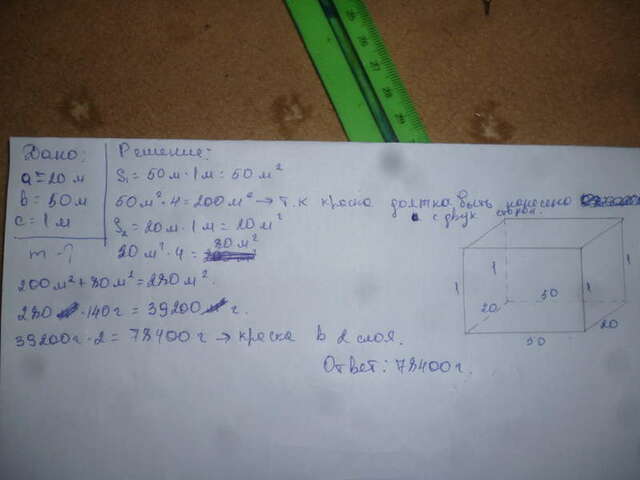 25 26 27 28 29
Дано:
a = 20 м
b = 50 м
c = 1 м
m - ?
Решение:
S₁ = 50 м · 1 м = 50 м²
50 м² · 4 = 200 м² → т.к краска должна быть нанесено
с двух сторон.
S₂ = 20 м · 1 м = 20 м²
20 м² · 4 = 80 м²
200 м² + 80 м² = 280 м²
280 · 140 г = 39200 г.
39200 г · 2 = 78400 г → краска в 2 слоя.
Ответ: 78400 г.
1 1 1 1
20 50
50 20